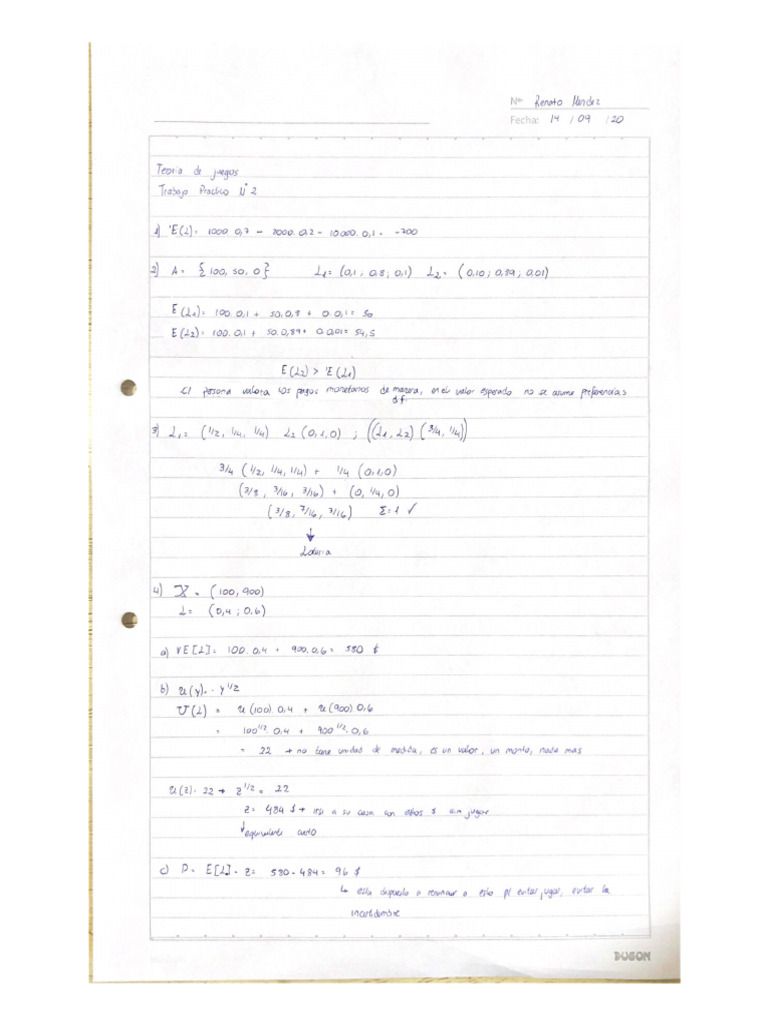 Nº Renato Mendez
Fecha: 14 / 09 / 20
Teoria de juegos
Trabajo Practico N° 2
1) E(L)= 1000. 0,7 - 7000. 0,2 - 10000. 0,1 = -700
2) A= {100, 50, 0} L1= (0,1 ; 0,8 ; 0,1) L2= (0,10 ; 0,89 ; 0,01)
E(L1)= 100. 0,1 + 50. 0,8 + 0. 0,1= 50
E(L2)= 100. 0,1 + 50. 0,89 + 0. 0,01= 54,5
E(L2) > E(L1)
c/ persona valora los pagos monetarios de manera, en el valor esperado no se asume preferencias
dif.
3) L1= (1/2, 1/4, 1/4) L2 (0,1,0) ; ((L1, L2) (3/4, 1/4))
3/4 (1/2, 1/4, 1/4) + 1/4 (0,1,0)
(3/8, 3/16, 3/16) + (0, 1/4, 0)
(3/8, 7/16, 3/16) Σ=1 ✓
↓
Loteria
4) X = (100, 900)
L= (0,4 ; 0,6)
a) VE[L]= 100. 0,4 + 900. 0,6 = 580 $
b) u(y)= y^1/2
U(L) = u(100). 0,4 + u(900). 0,6
= 100^1/2. 0,4 + 900^1/2. 0,6
= 22 → no tiene unidad de medida, es un valor, un monto, nada mas
u(z)= 22 → z^1/2 = 22
z= 484 $ → irse a su casa con estos $ sin jugar
↓ equivalente cierto
c) P= E[L] - z= 580 - 484 = 96 $
↳ esta dispuesto a renunciar a esto p/ evitar jugar, evitar la
incertidumbre
DUSON